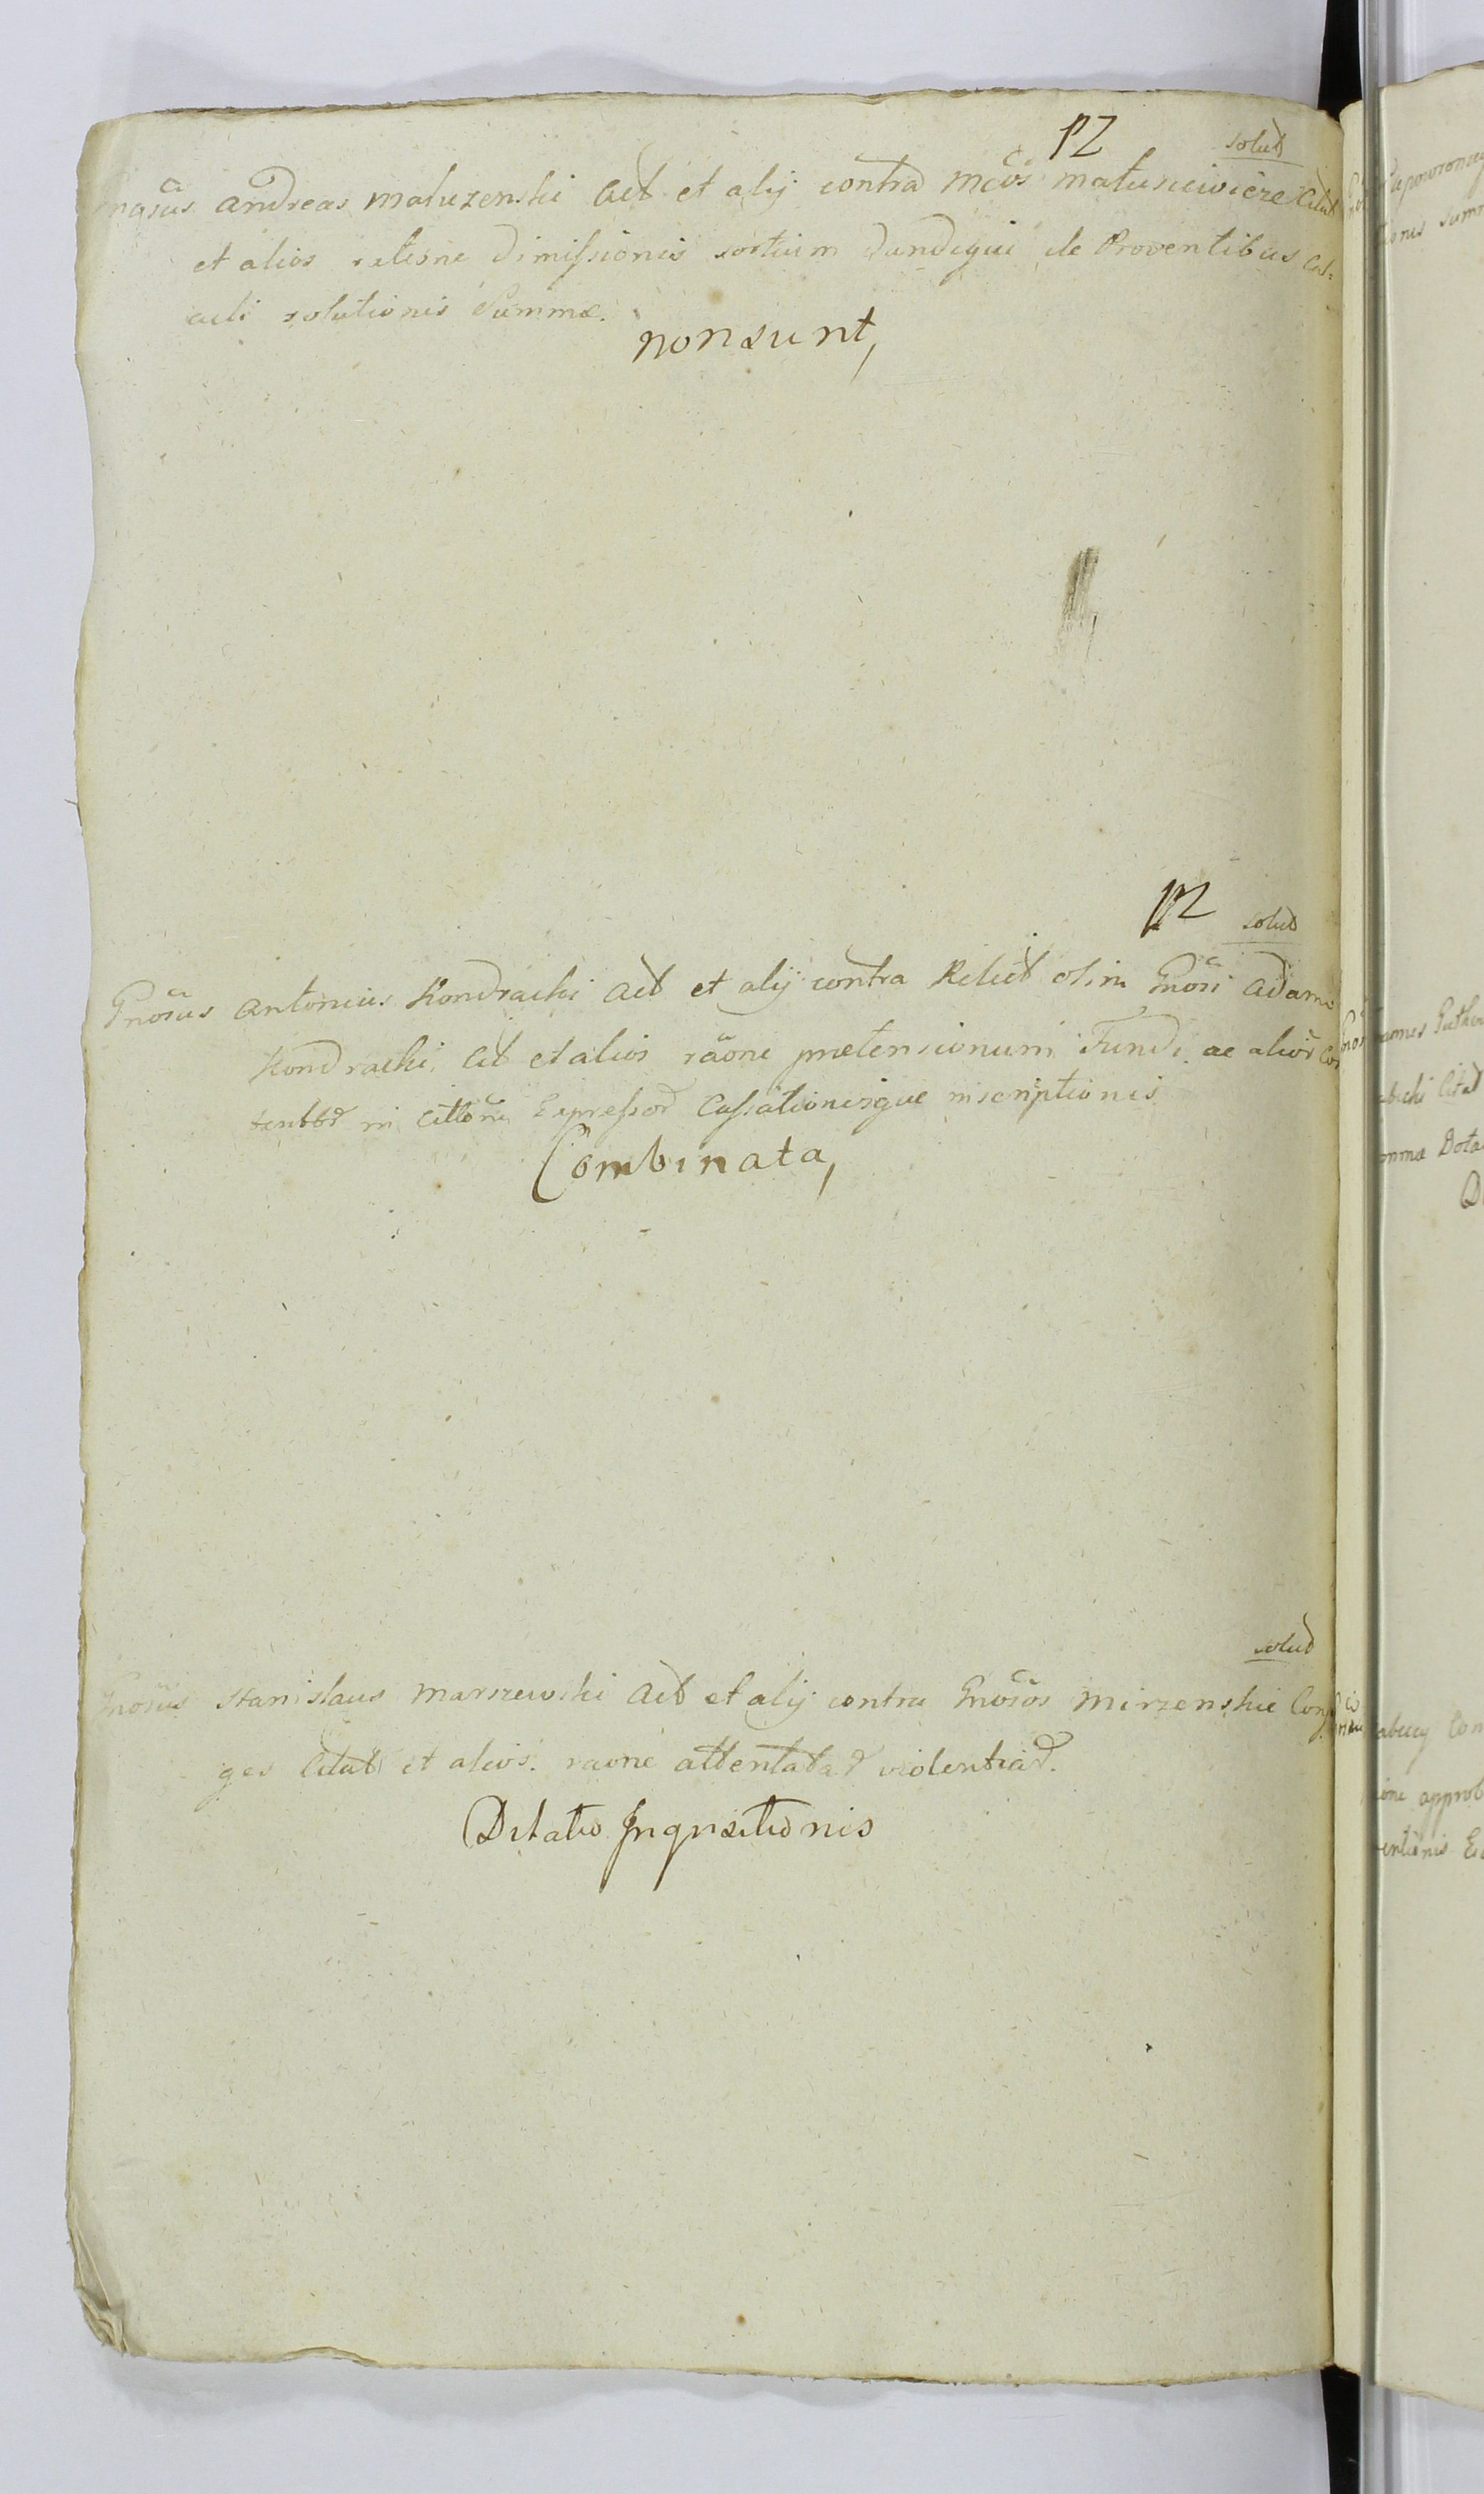 PZ solut
Gnosus Andreas Maluzenski Act et alij contra Mcos Matusiewicze Citat
et alios ratione dimissionis sortium Dundigui de Proventibus Cal=
culi solutionis Summæ.
non sunt,
PZ solut
Gnosus Antonius Kondracki Act et alij contra Relict olim Gnosi Adami
Kondracki Cit et alios raone prætensionum Fundi ac alior Con
tentor in Cittone Expressor Cassationisque inscriptionis
Combinata,
solut
Gnosus Stanislaus Marszewski Act et alij contra Gnosos Mirzenskie Conju
ges Citat et alios. raone attentatar violentiar.
Dilatio Inqnisitionis